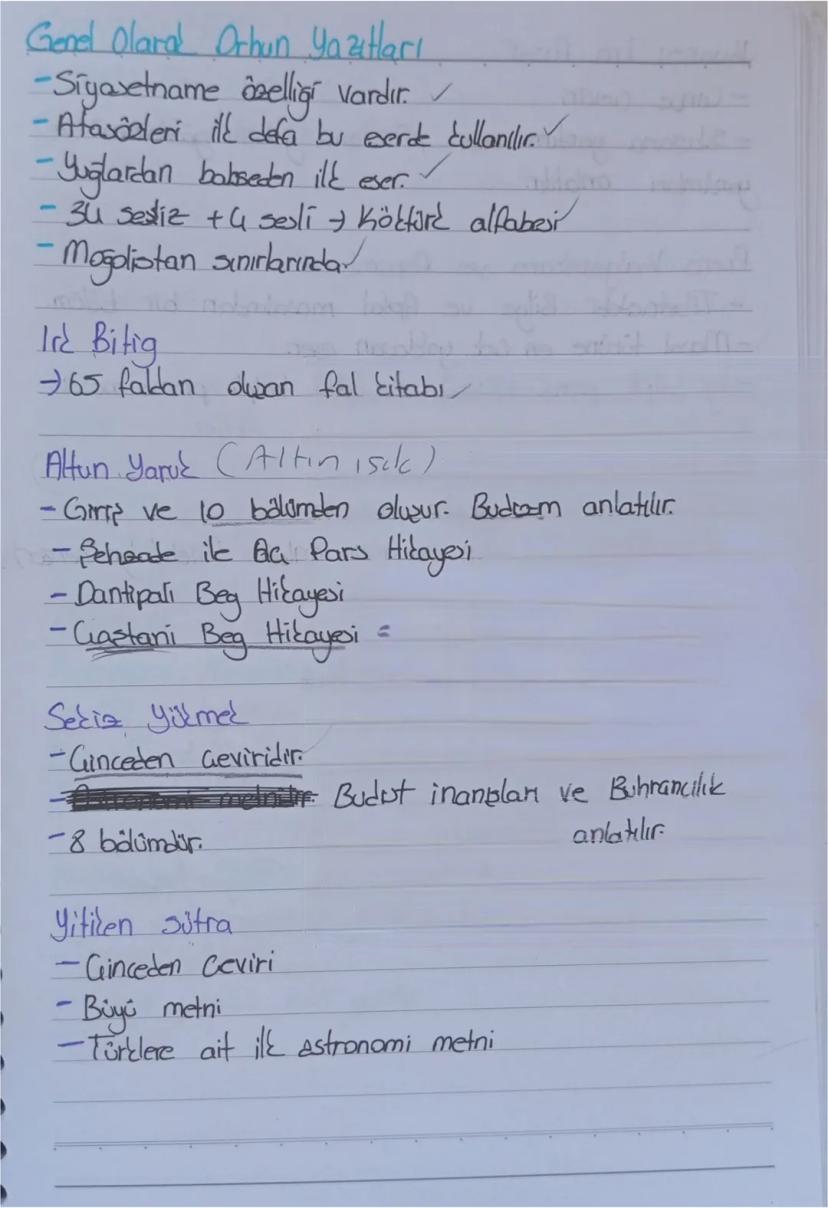 Genel Olarak Orhun Yazıtları
- Siyasetname özelliği vardır. ✓
- Atasözleri ilk defa bu eserde kullanılır. ✓
- Yuğlardan bahseden ilk eser. ✓
- 34 sessiz + 4 sesli → Köktürk alfabesi ✓
- Moğolistan sınırlarında ✓
Irk Bitig
→ 65 faldan oluşan fal kitabı ✓
Altun Yaruk (Altın ışık)
- Giriş ve 10 bölümden oluşur. Budizm anlatılır.
- Şehzade ile Aç Pars Hikayesi
- Dantipali Beg Hikayesi
- Çaştani Beg Hikayesi =
Sekiz Yükmek
- Çinceden Çeviridir.
- Budist inanışları ve Buhrancılık
anlatılır.
- 8 bölümdür.
Yitiken Sutra
- Çinceden Çeviri
- Büyü metni
- Türklere ait ilk astronomi metni